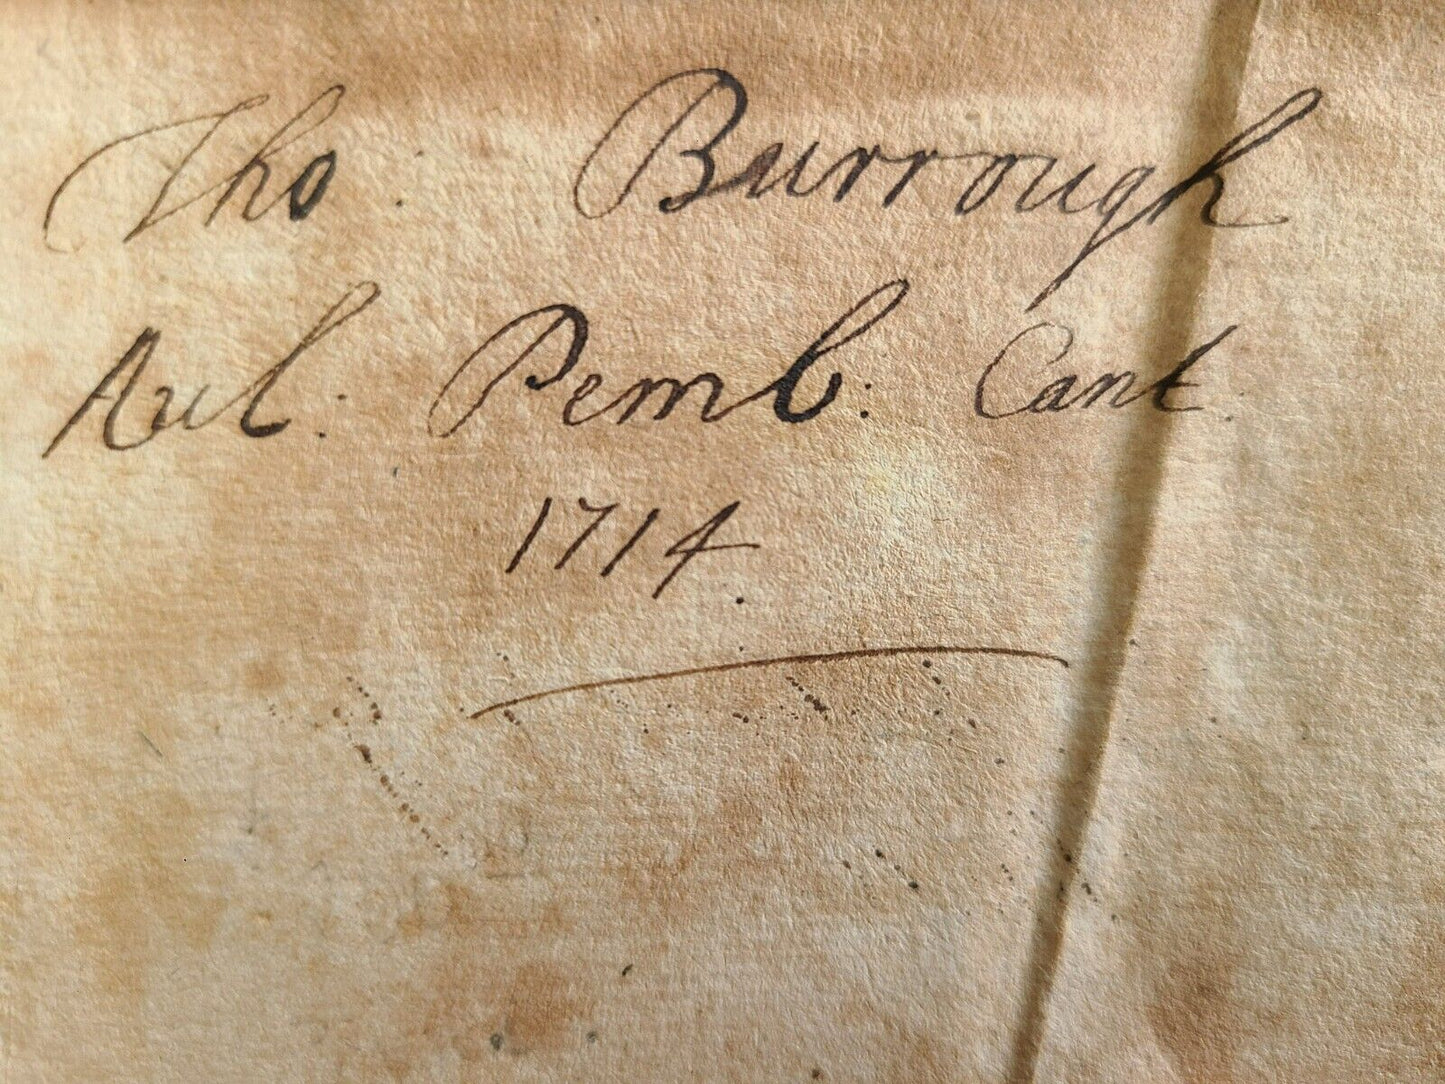 Tho: Burrough
Aul: Pemb: Cant.
1714.